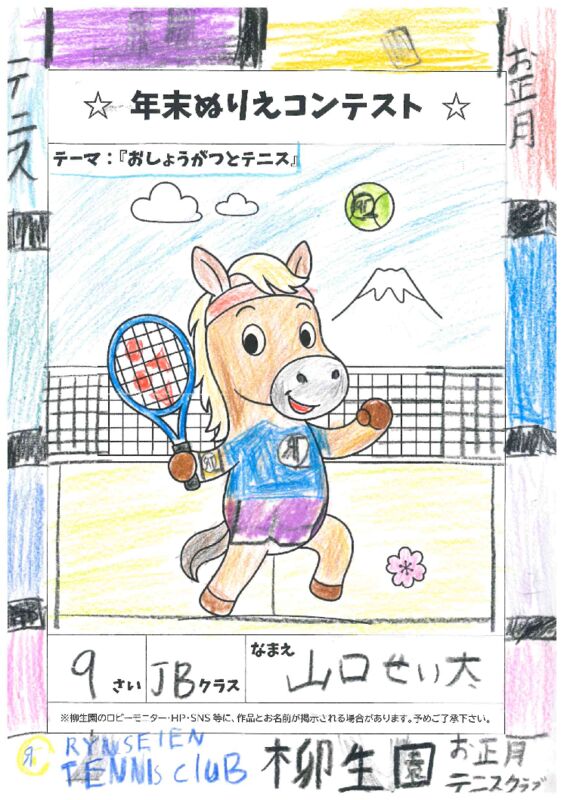 テニス
お正月
☆ 年末ぬりえコンテスト ☆
テーマ：『おしょうがつとテニス』
9さい
JBクラス
なまえ
山口せい太
※柳生園のロビーモニター・HP・SNS 等に、作品とお名前が掲示される場合があります。予めご了承下さい。
RYNSEIEN
TENNIS CluB
柳生園
お正月
テニスクラブ